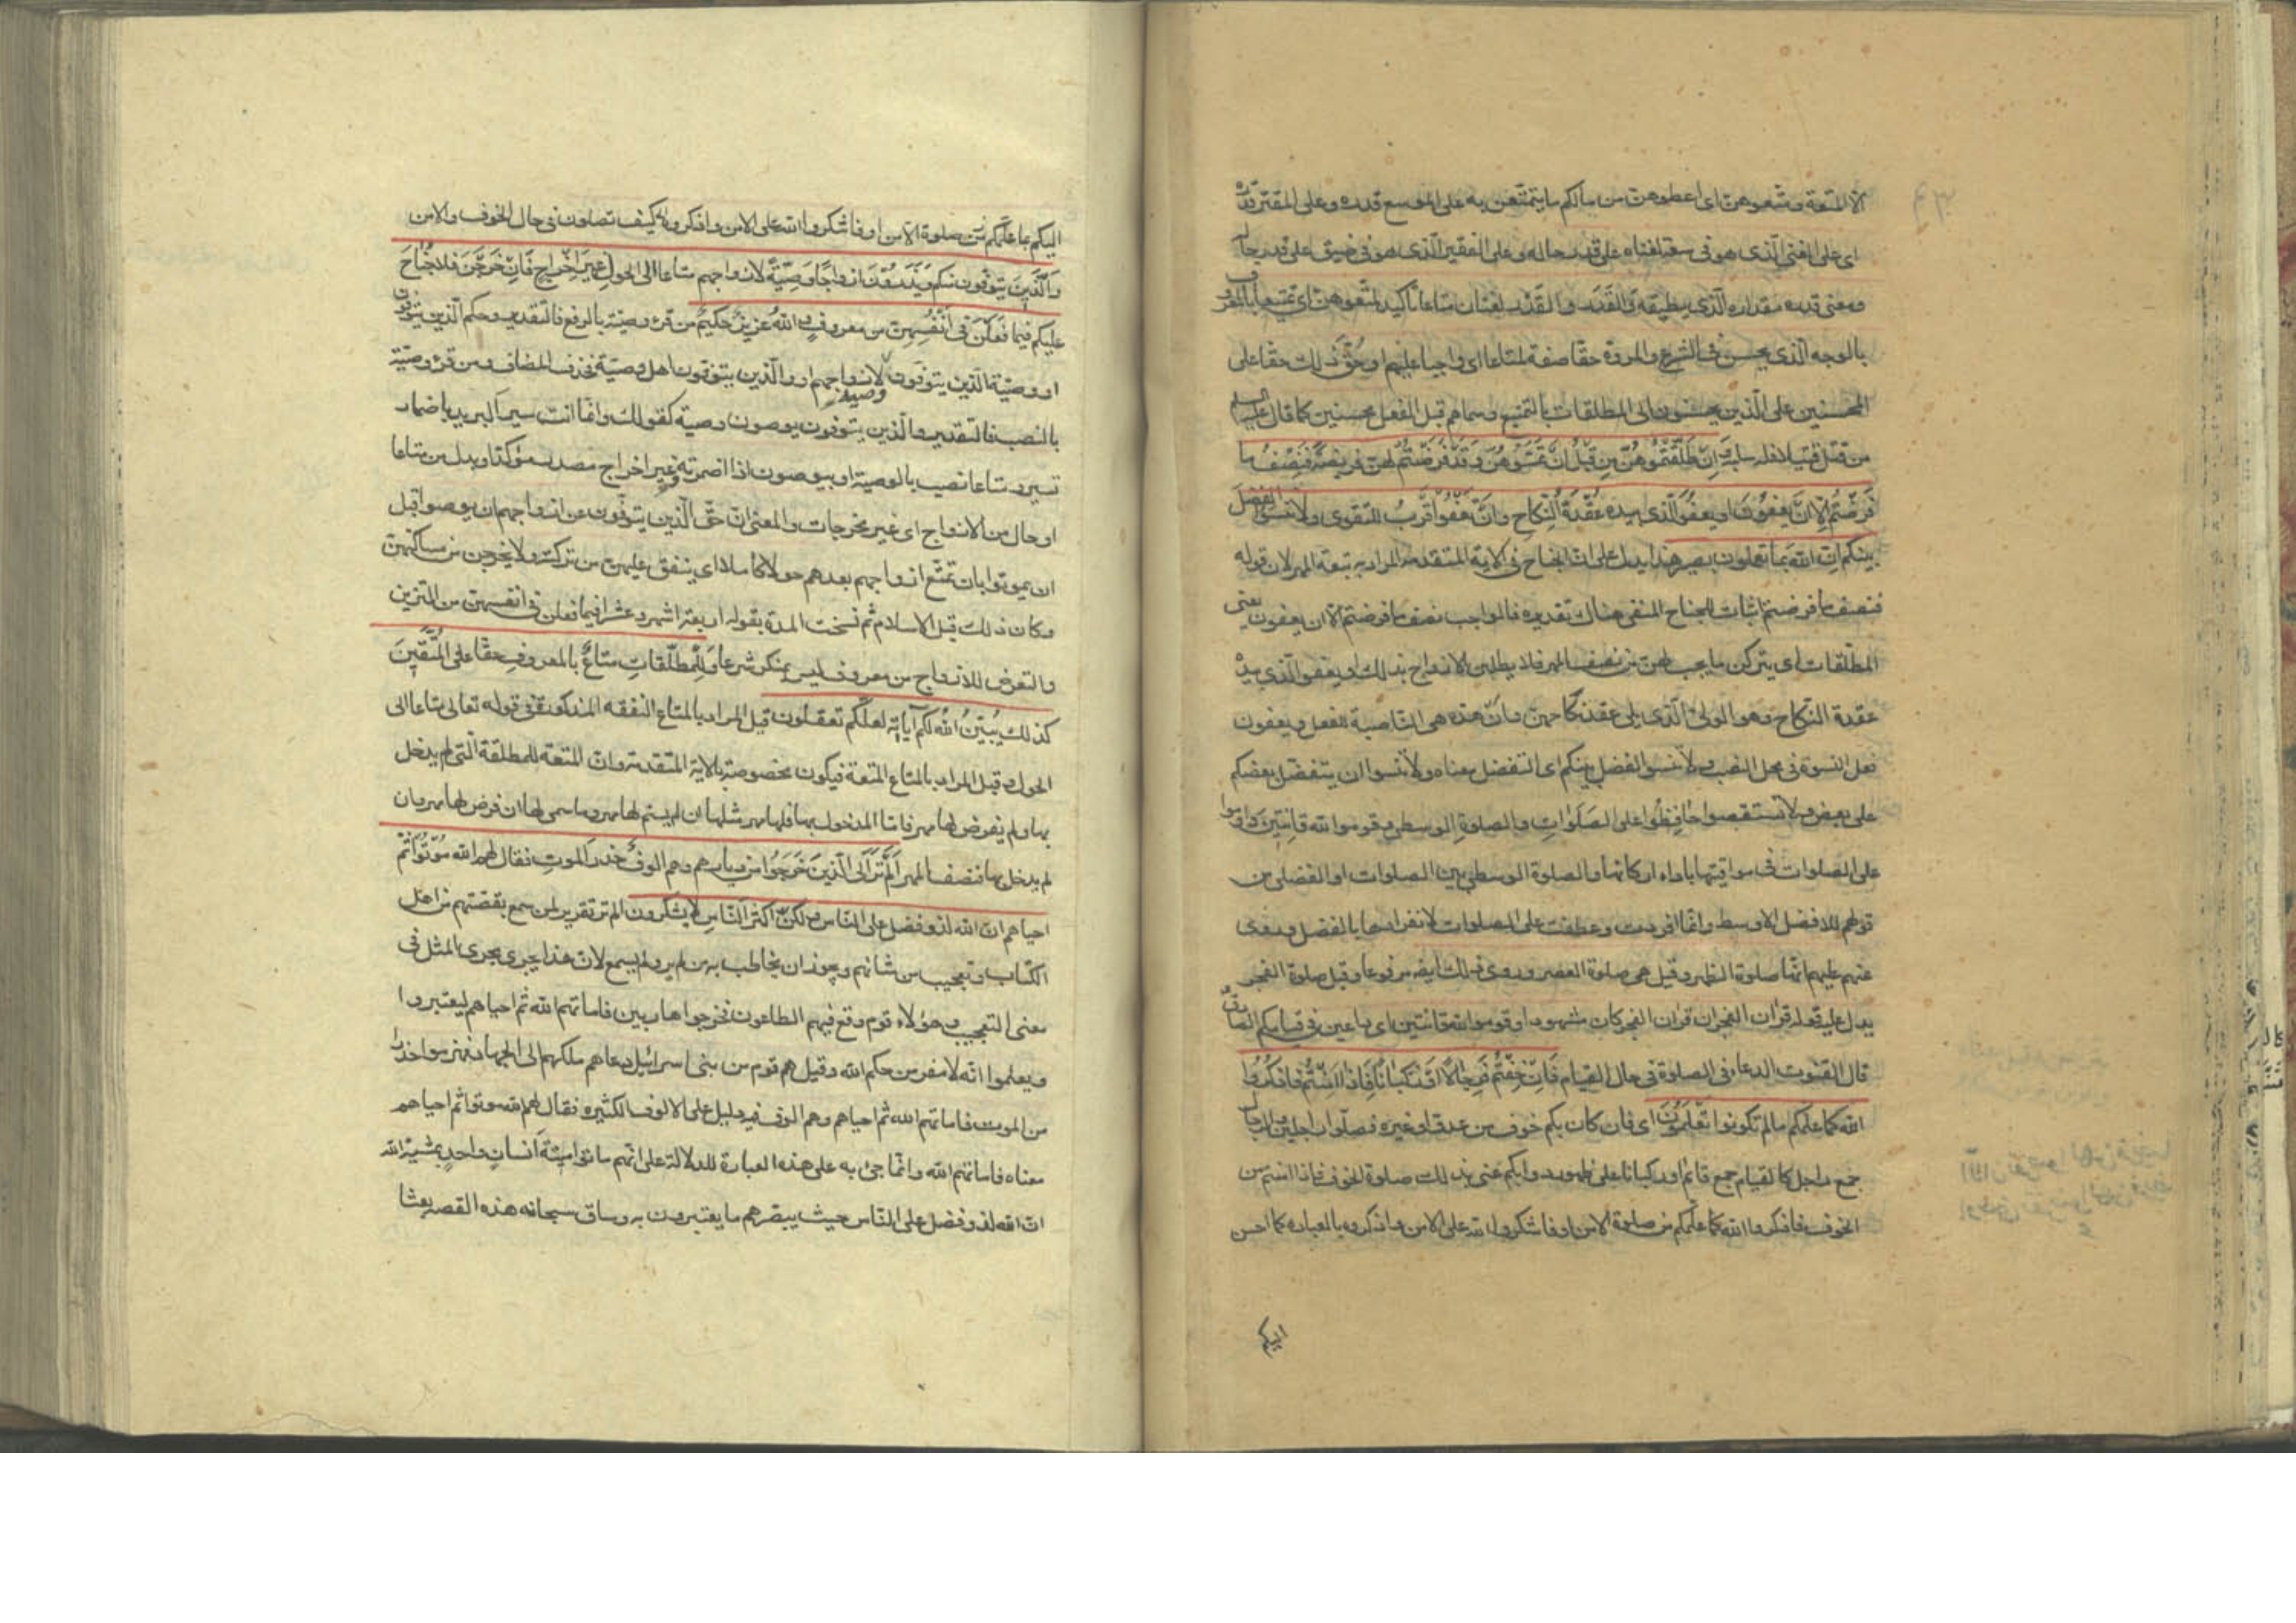 الا المتعة ومتعوهن اى اعطوهن من مالكم ما يتمتعن به على الموسع قدره وعلى المقتر قدره
اى على الغنى الذى هو فى سعة لغناه على قدر حاله وعلى الفقير الذى هو فى ضيق على قدر حاله
ومعنى قدره مقداره الذى يطيقه والقدر والقدر لغتان متاعا تأكيد لمتعوهن اى تمتيعا بالمعروف
بالوجه الذى يحسن فى الشرع والمروة حقا صفة لمتاعا اى واجبا عليهم او حق ذلك حقا على
المحسنين على الذين يحسنون الى المطلقات بالتمتيع وسماهم قبل الفعل محسنين كما قال عليه السلم
من قتل قتيلا فله سلبه وان طلقتموهن من قبل ان تمسوهن وقد فرضتم لهن فريضة فنصف ما
فرضتم الا ان يعفون او يعفو الذى بيده عقدة النكاح وان تعفوا اقرب للتقوى ولا تنسوا الفضل
بينكم ان الله بما تعملون بصير هذا يدل على ان الجناح فى الاية المتقدمة المراد به تبعة المهر لان قوله
فنصف ما فرضتم اثبات للجناح المنفى هناك تقديره فالواجب نصف ما فرضتم الا ان يعفون يعنى
المطلقات اى يتركن ما يجب لهن من نصف المهر فلا يطلبن الازواج بذلك او يعفو الذى بيده
عقدة النكاح وهو الولى الذى يلى عقد نكاحهن وان هذه هى الناصبة للفعل ويعفون
فعل النسوة فى محل النصب ولا تنسوا الفضل بينكم اى التفضل معناه ولا تنسوا ان يتفضل بعضكم
على بعض ولا تستقصوا حافظوا على الصلوات والصلوة الوسطى وقوموا لله قانتين داوموا
على الصلوات فى مواقيتها باداء اركانها والصلوة الوسطى بين الصلوات او الفضلى من
قولهم للافضل الاوسط وانما افردت وعطفت على الصلوات لانفرادها بالفضل وروى
عنهم عليهم انها صلوة الظهر وقيل هى صلوة العصر وروى ذلك ايضه مرفوعا وقيل صلوة الفجر
يدل عليه قوله قران الفجر ان قران الفجر كان مشهودا وقوموا لله قانتين اى داعين فى قيامكم الصادق
قال القنوت الدعاء فى الصلوة فى حال القيام فان خفتم فرجالا او ركبانا فاذا امنتم فاذكروا
الله كما علمكم ما لم تكونوا تعلمون اى فان كان بكم خوف من عدو او غيره فصلوا راجلين والرجال
جمع راجل كالقيام جمع قائم او ركبانا على ظهور دوابكم عنى بذلك صلوة الخوف فاذا امنتم من
الخوف فاذكروا الله كما علمكم من صلوة الامن او فاشكروا الله على الامن واذكروه بالعبادة كما احسن
اليكم
اليكم بما علمكم من صلوة الامن او فاشكروا الله على الامن واذكروه كيف تصلون فى حال الخوف والامن
والذين يتوفون منكم ويذرون ازواجا وصية لازواجهم متاعا الى الحول غير اخراج فان خرجن فلا جناح
عليكم فيما فعلن فى انفسهن من معروف والله عزيز حكيم من قرء وصية بالرفع فالتقدير وحكم الذين يتوفون
او وصية الذين يتوفون وصية لازواجهم او والذين يتوفون اهل وصية فحذف المضاف ومن قرء وصية
بالنصب فالتقدير والذين يتوفون يوصون وصية كقولك وانما انت سير البريد باضمار
تسير ومتاعا نصب بالوصية او بيوصون اذا اضمرته وغير اخراج مصدر مؤكد او بدل من متاعا
او حال من الازواج اى غير مخرجات والمعنى ان حق الذين يتوفون عن ازواجهم ان يوصوا قبل
ان يموتوا بان تمتع ازواجهم بعدهم حولا كاملا اى ينفق عليهن من تركته ولا يخرجن من مساكنهن
وكان ذلك قبل الاسلام ثم نسخت المدة بقوله اربعة اشهر وعشرا فيما فعلن فى انفسهن من التزين
والتعرض للازواج من معروف ليس بمنكر شرعا وللمطلقات متاع بالمعروف حقا على المتقين
كذلك يبين الله لكم آياته لعلكم تعقلون قيل المراد بالمتاع النفقه المذكورة فى قوله تعالى متاعا الى
الحول وقيل المراد بالمتاع المتعة فيكون مخصوصة بالاية المتقدمة وان المتعة للمطلقة التى لم يدخل
بها ولم يفرض لها مهر فاما المدخول بها فلها مهر مثلها ان لم يسم لها مهر وما سمى لها ان فرض لها مهر وان
لم يدخل بها فنصف المهر الم تر الى الذين خرجوا من ديارهم وهم الوف حذر الموت فقال لهم الله موتوا ثم
احياهم ان الله لذو فضل على الناس ولكن اكثر الناس لا يشكرون الم تر تقرير لمن سمع بقصتهم من اهل
الكتاب وتعجيب من شانهم ويجوز ان يخاطب به من لم ير ولم يسمع لان هذا يجرى مجرى المثل فى
معنى التعجيب وهؤلاء قوم وقع فيهم الطاعون فخرجوا هاربين فاماتهم الله ثم احياهم ليعتبروا
ويعلموا انه لا مفر من حكم الله وقيل هم قوم من بنى اسرائيل دعاهم ملكهم الى الجهاد فهربوا حذرا
من الموت فاماتهم الله ثم احياهم وهم الوف فيه دليل على الالوف الكثيره فقال لهم الله موتوا ثم احياهم
معناه فاماتهم الله وانما جئ به على هذه العبارة للدلالة على انهم ماتوا ميتة انسان واحد بمشية الله
ان الله لذو فضل على الناس حيث يبصرهم ما يعتبرون به وساق سبحانه هذه القصه بعثا